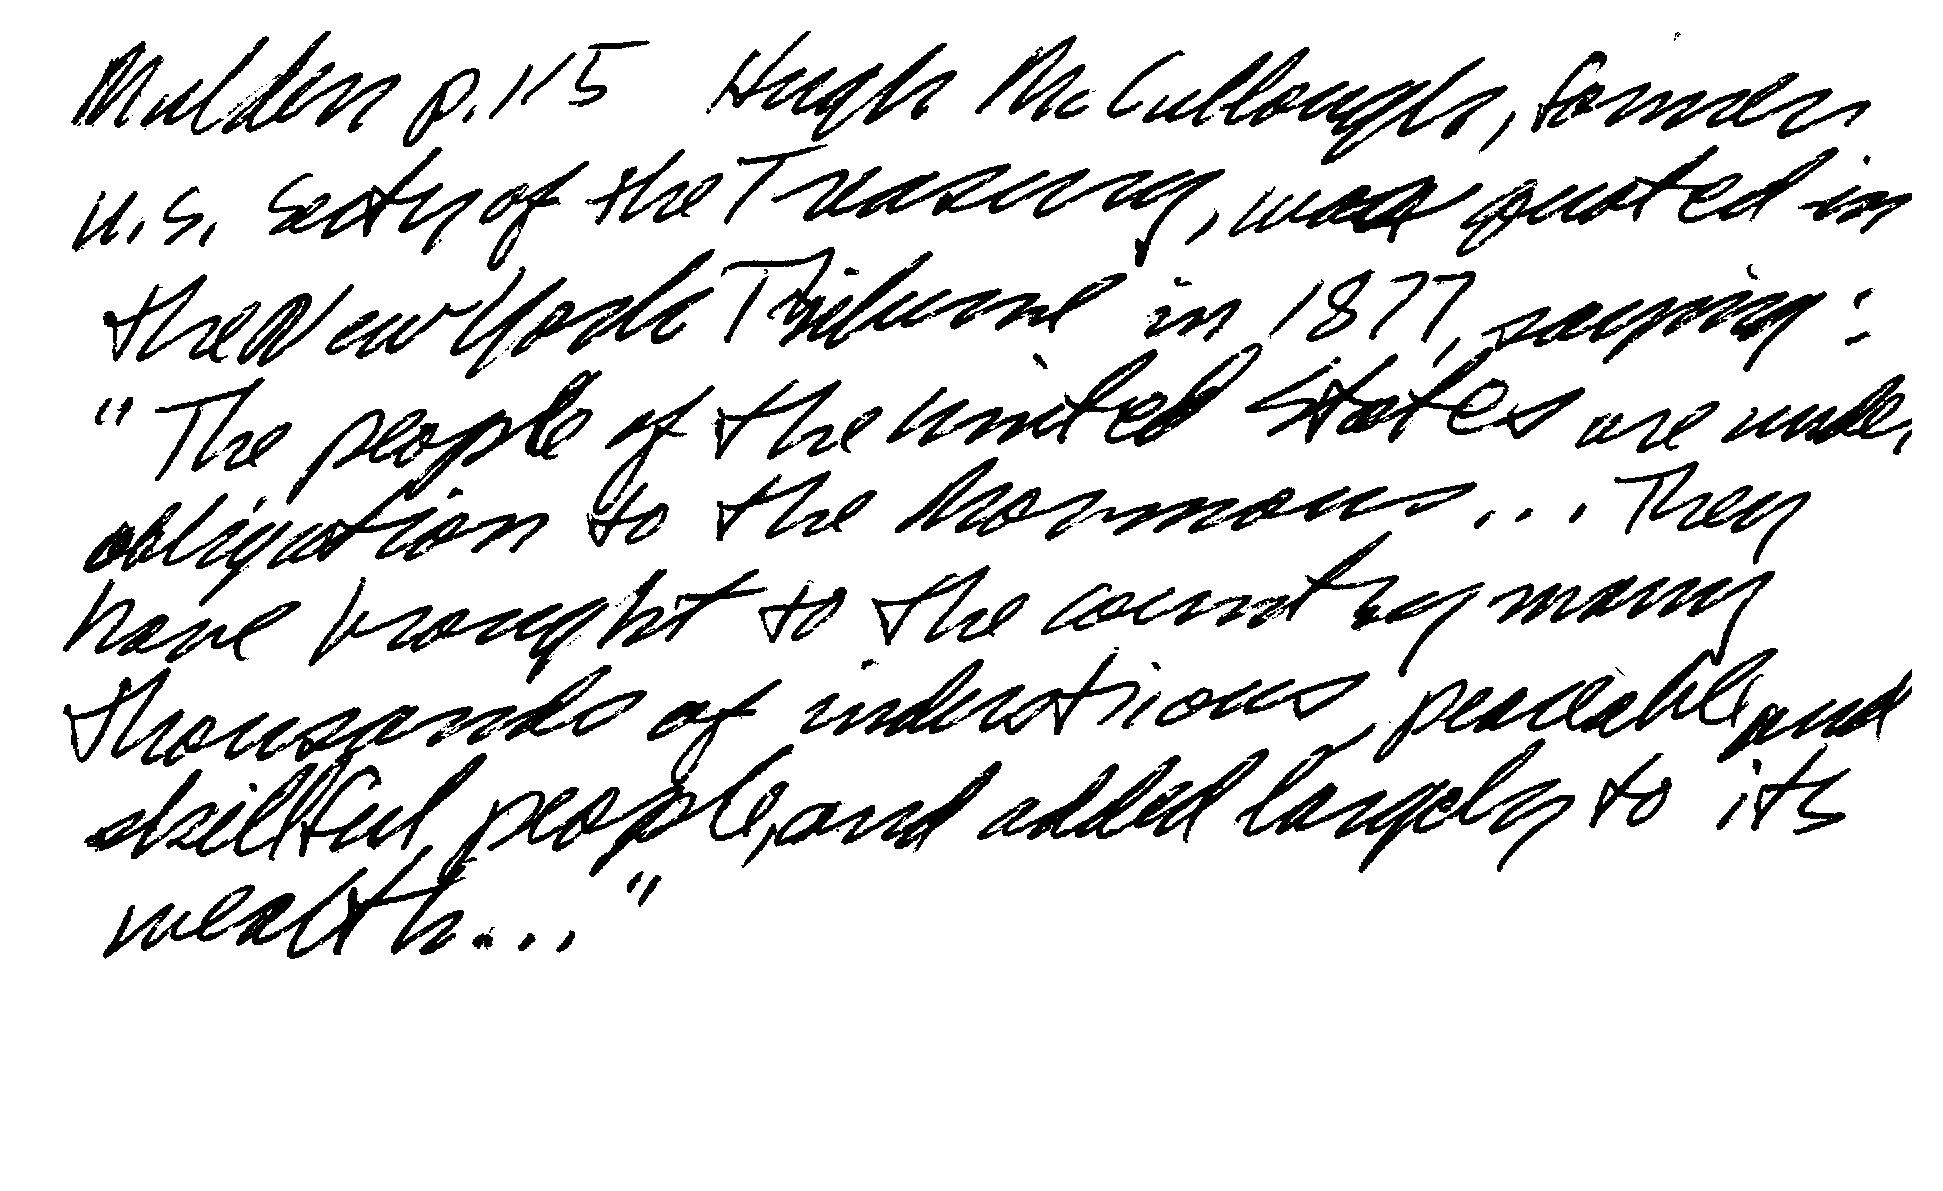 Mulder p. 115 Hugh McCullough, former
U.S. Secty of the Treasury, was quoted in
the New York Tribune in 1877, saying:
"The people of the United States are under
obligation to the Mormons... They
have brought to the country many
thousands of industrious, peaceable and
skillful people, and added largely to its
wealth..."